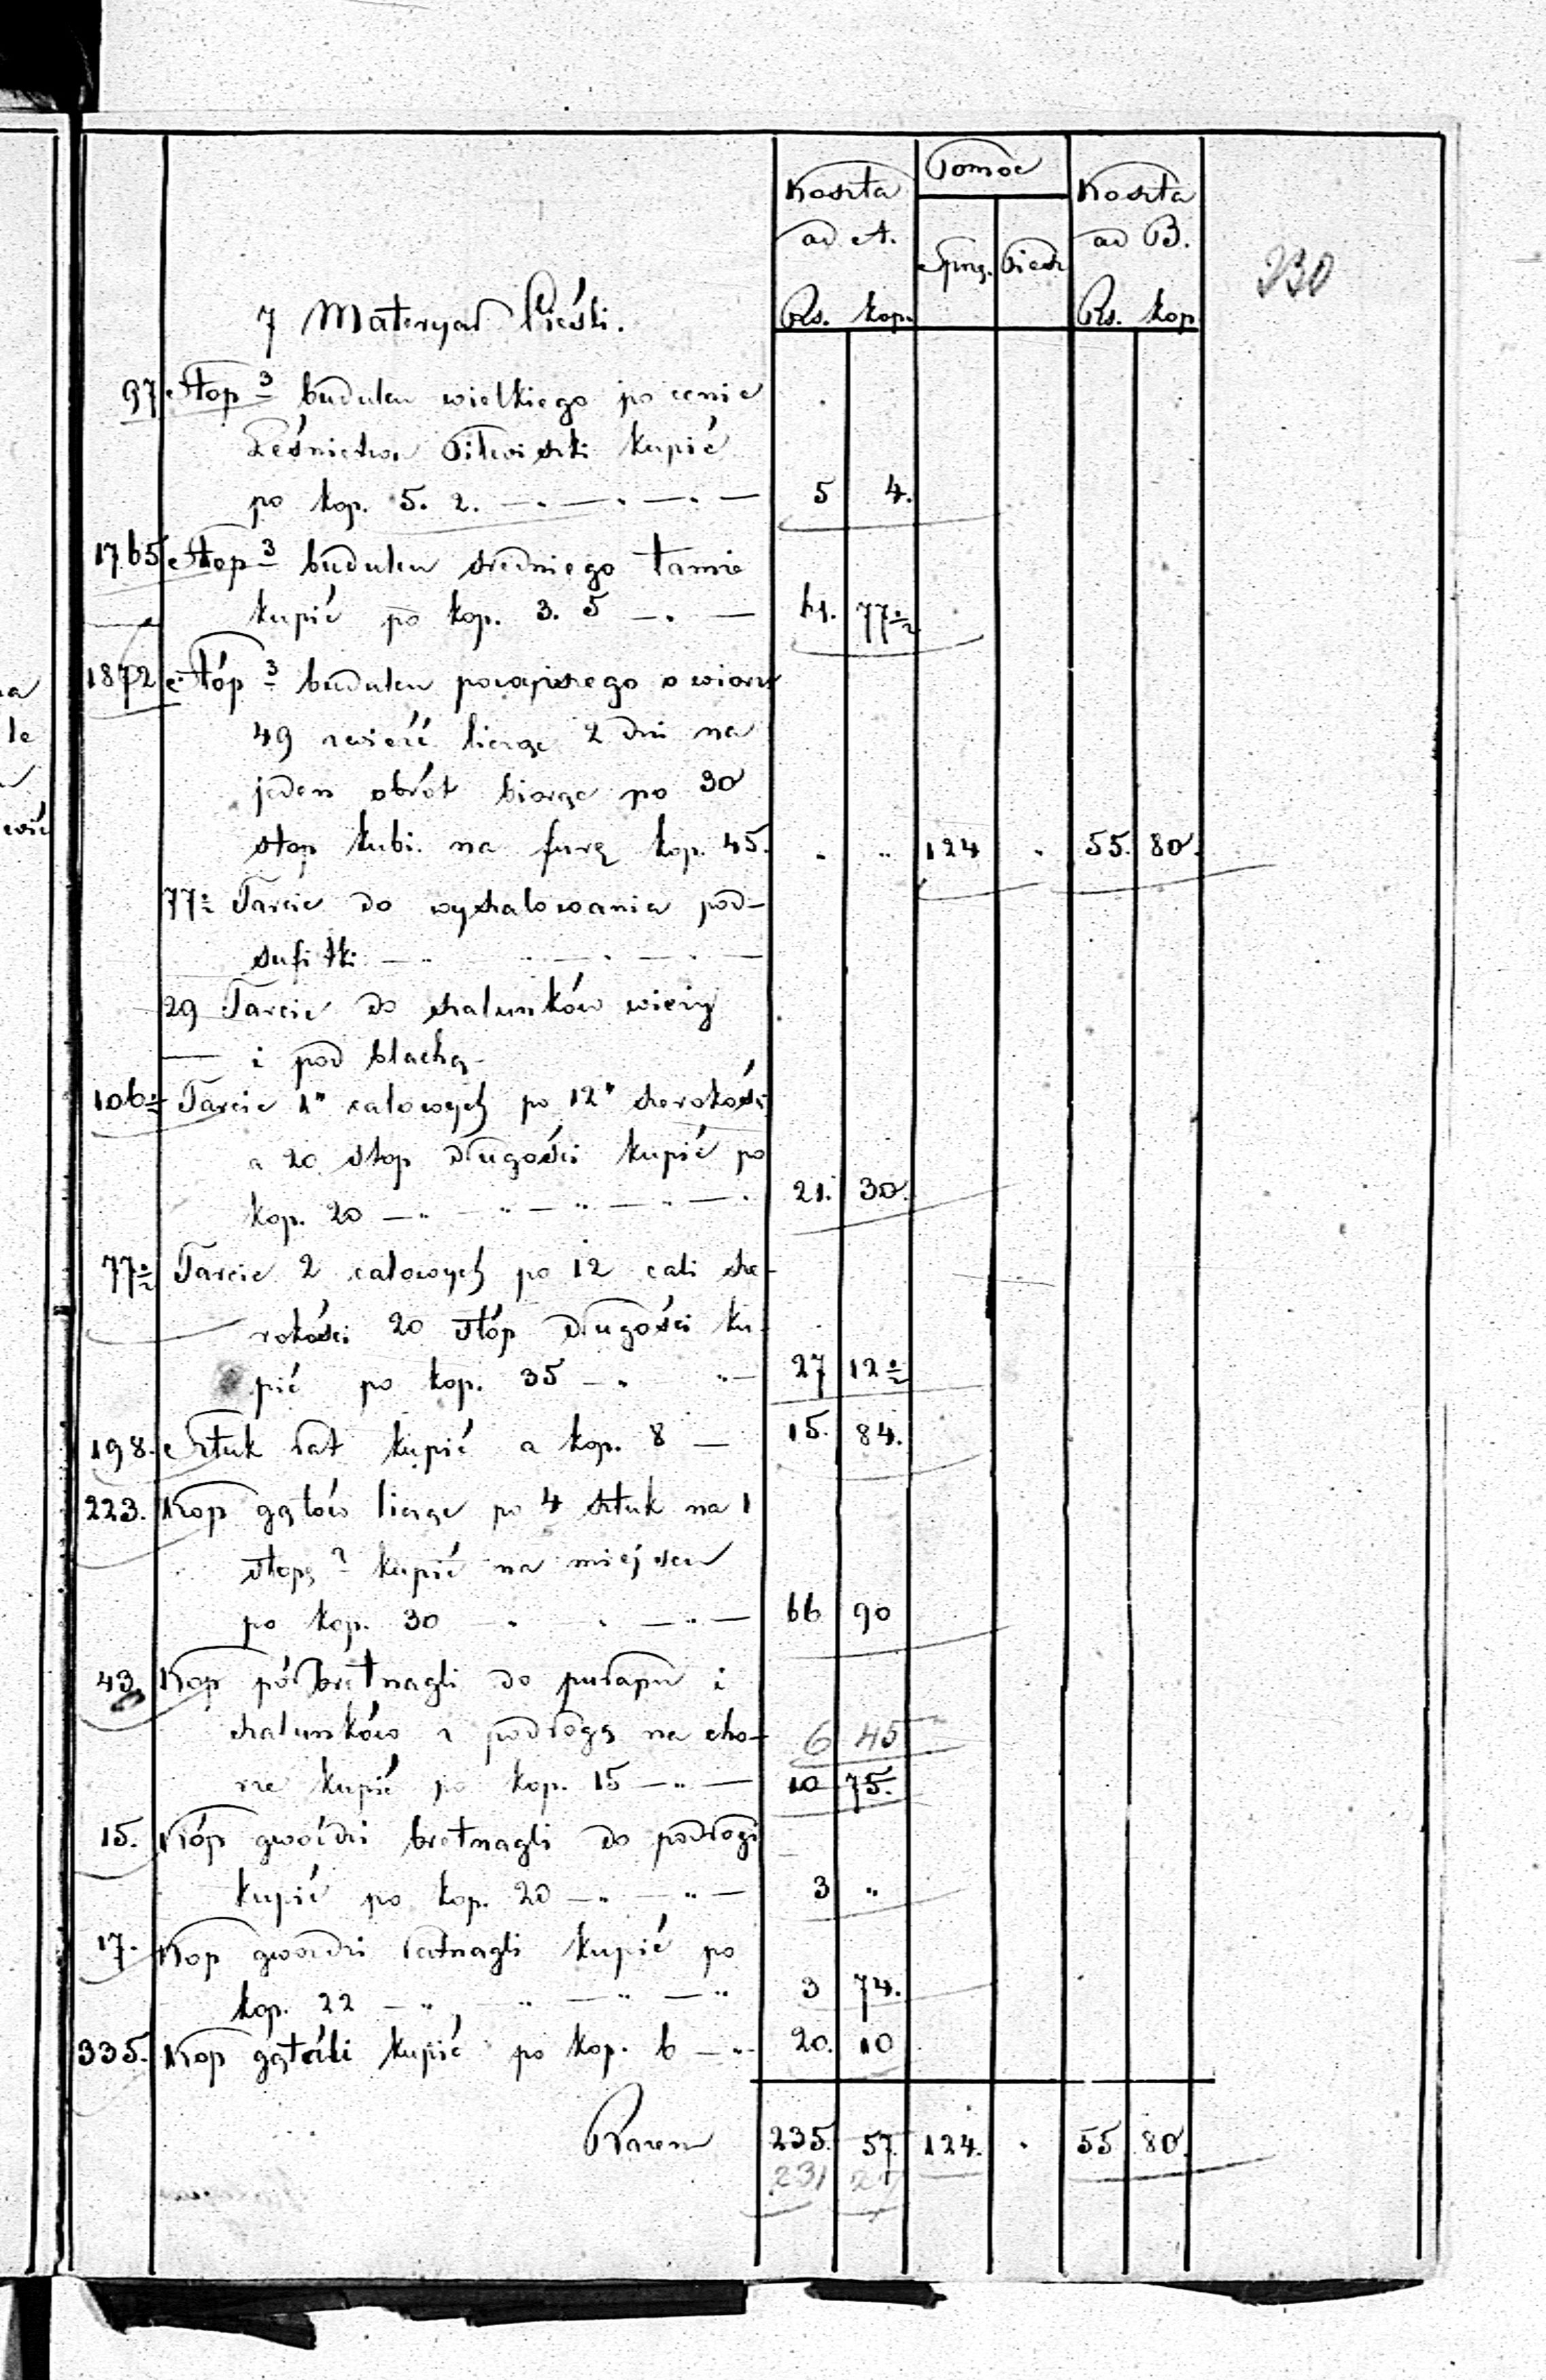 230
Koszta ad A. Rs. kop.
Pomoc Sprzę. Piesz
Koszta ad B. Rs. kop
7 Materyał Cieśli.
97 Stop 3 budulcu wielkiego po cenie
Leśnictwa Pilwiszki kupić
po kop. 5. 2. 5 4.
1765 Stop 3 budulcu średniego tamże
kupić po kop. 3. 5 61. 77½
1872 Stóp 3 budulcu powyższego o wiorst
49 zwieźć licząc 2 dni na
jeden obrót biorąc po 30
stop kubi. na furę kop. 45. " " 124 " 55. 80.
77½ Tarcic do wyszalowania pod-
sufitki
29 Tarcic do szalunków wieży
i pod blachę
106½ Tarcic 1" calowych po 12" szerokości
a 20 stop długości kupić po
kop. 20 21. 30.
77½ Tarcic 2 calowych po 12 cali sze-
rokości 20 stóp długości ku-
pić po kop. 35 27 12½
198. Sztuk łat kupić a kop. 8 15. 84.
223. Kop gątów licząc po 4 sztuk na 1
stopę 2 kupić na miejscu
po kop. 30 66 90
43. Kop pół bretnagli do pułapu i
szalunków i podłogę na cho- 6 45
rze kupić po kop. 15 10 75.
15. Kóp gwoździ bretnagli do podłogi
kupić po kop. 20 3 "
17. Kop gwoździ łatnagli kupić po
kop. 22 3 74.
335. Kop gątáli kupić po kop. 6 20. 10
Razem 235. 57. 124. " 55 80.
231 27